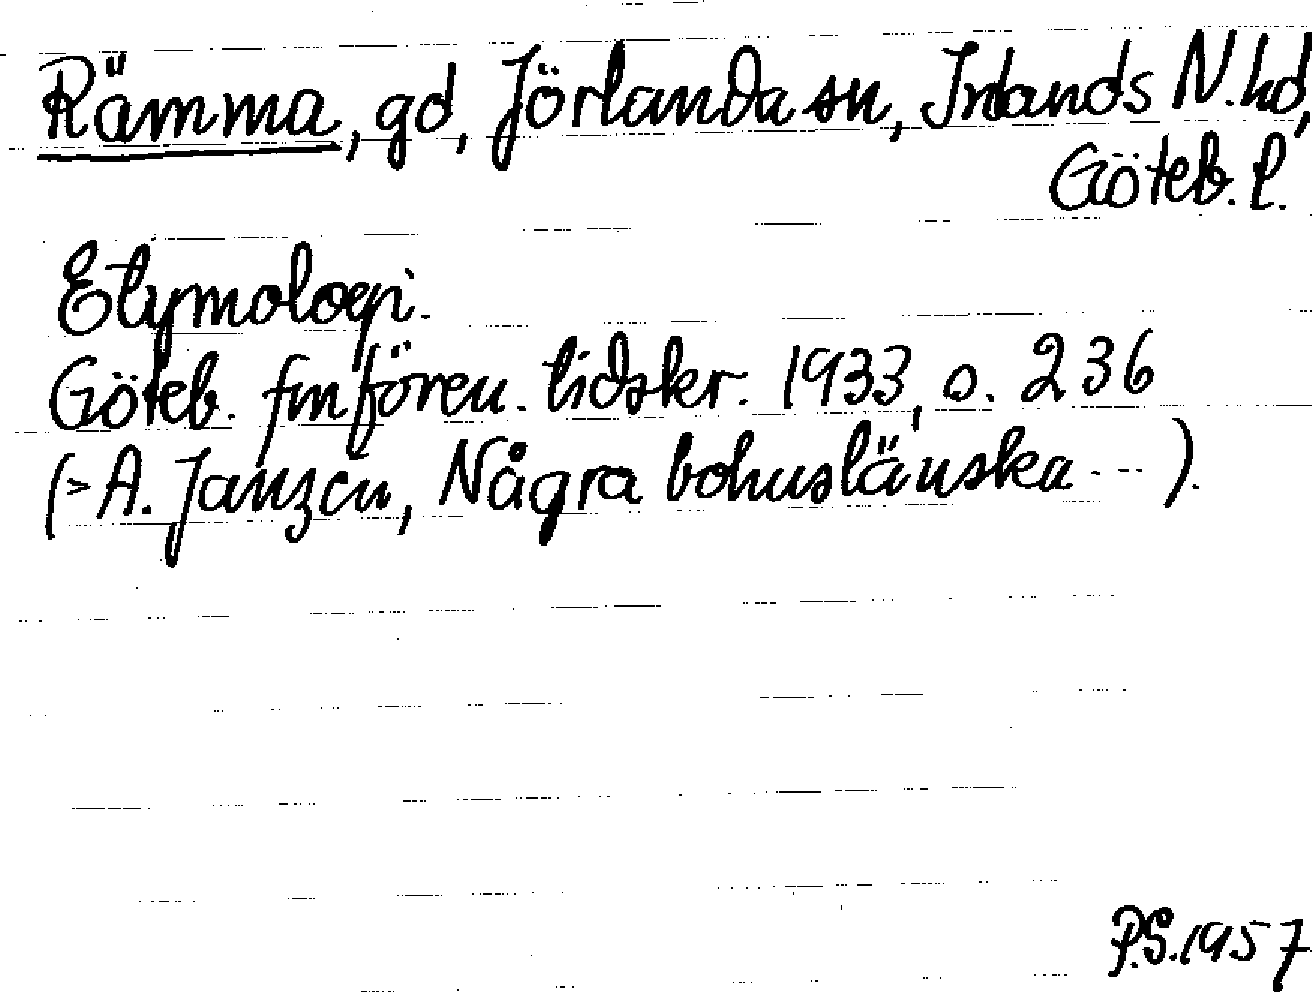 Rämma, gd, Jörlanda sn, Inlands N. hd,
Göteb. l.
Etymologi.
Göteb. fmfören. tidskr. 1933, s. 236
(> A. Janzén, Några bohuslänska ---).
P.S. 1957